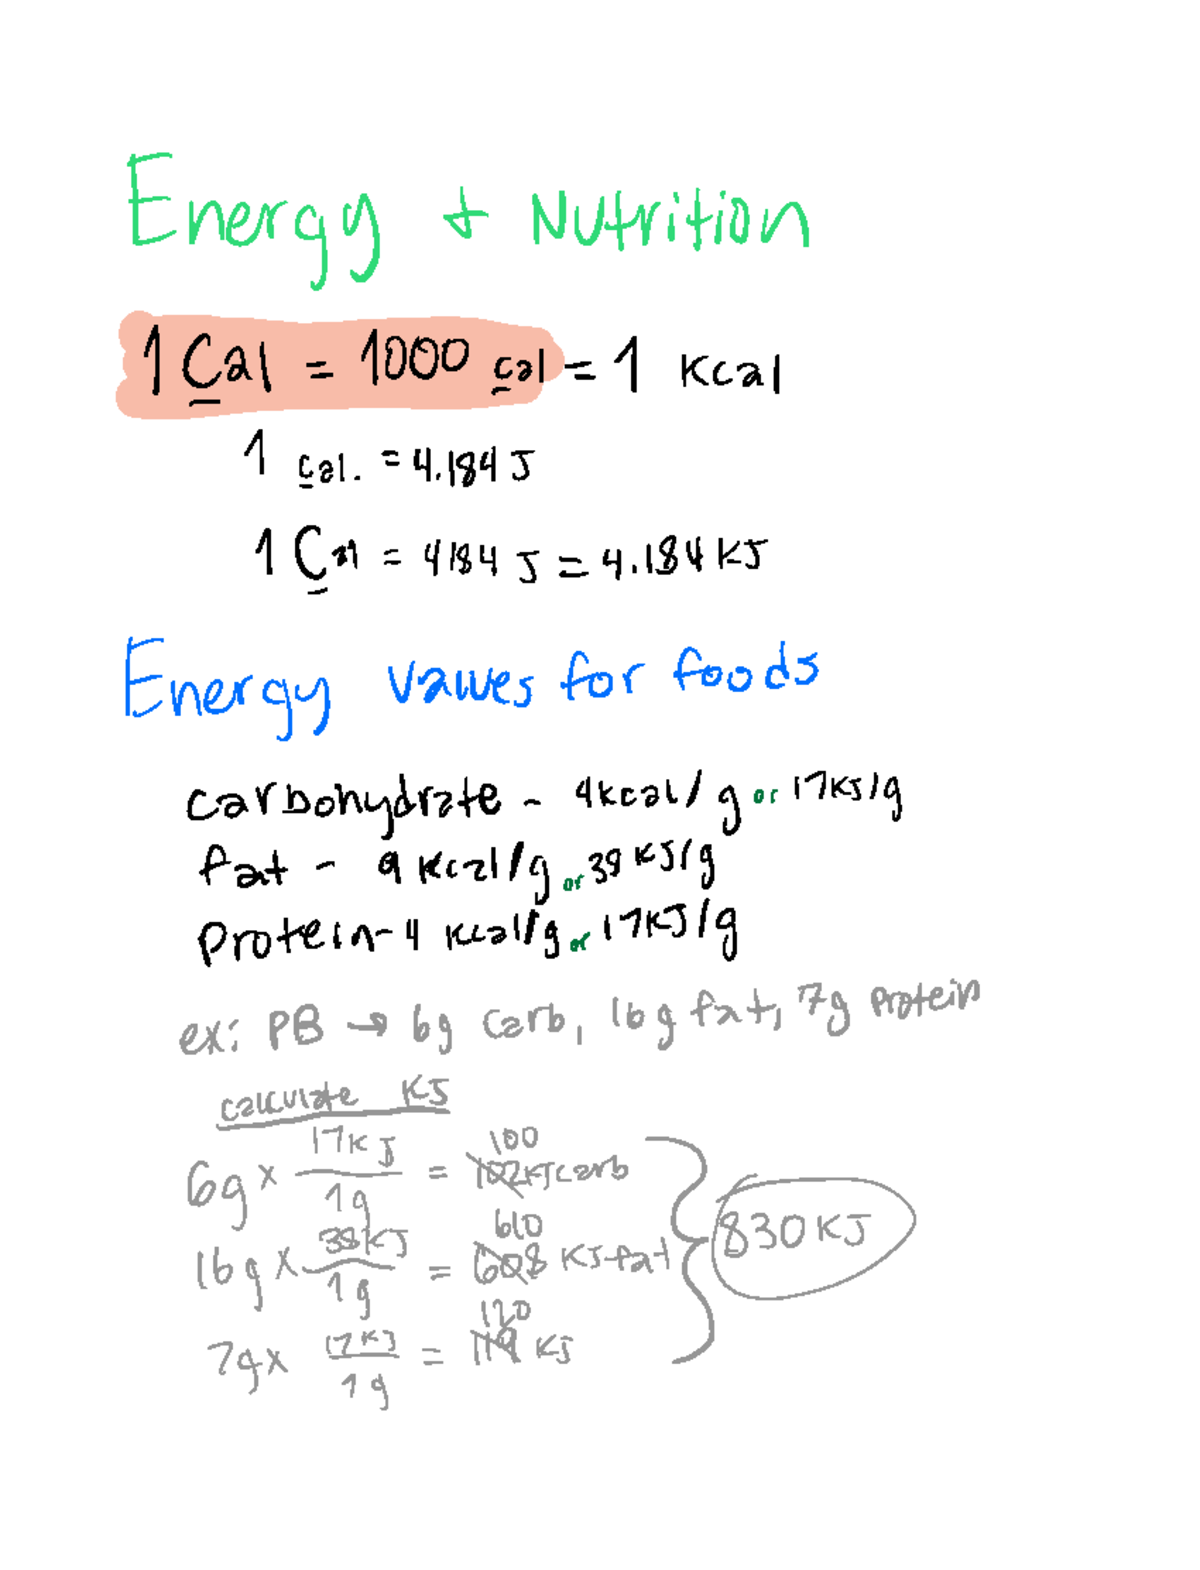 Energy & Nutrition
1 Cal = 1000 cal = 1 Kcal
1 cal. = 4.184 J
1 Cal = 4184 J = 4.184 KJ
Energy values for foods
carbohydrate - 4kcal/g or 17KJ/g
fat - 9 Kcal/g or 38 KJ/g
Protein - 4 Kcal/g or 17KJ/g
ex: PB → 6g carb, 16g fat, 7g protein
calculate KJ
100
6g x 17KJ/1g = 102KJ carb
610
16g x 38KJ/1g = 608 KJ fat
830 KJ
120
7g x 17KJ/1g = 119 KJ